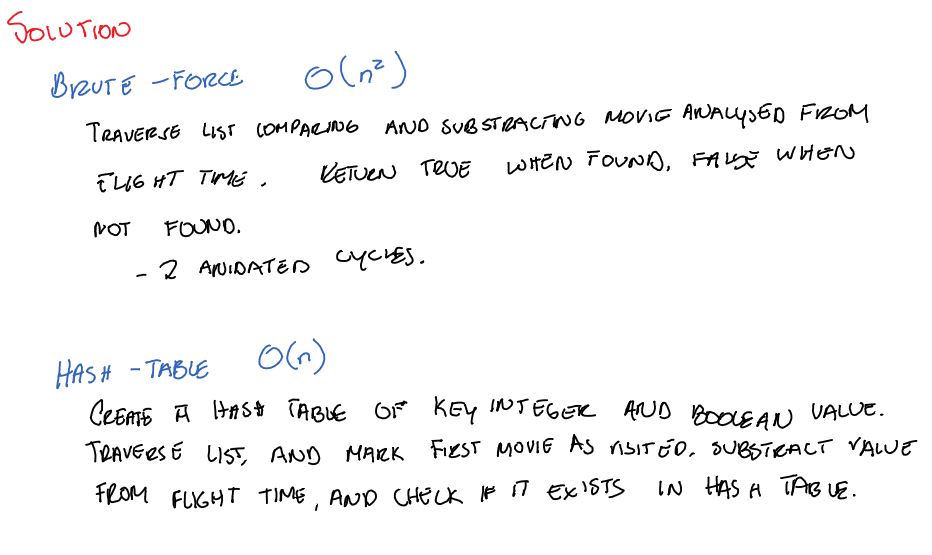 SOLUTION
BRUTE-FORCE O(n²)
TRAVERSE LIST COMPARING AND SUBSTRACTING MOVIE ANALYSED FROM
FLIGHT TIME. RETURN TRUE WHEN FOUND, FALSE WHEN
NOT FOUND.
- 2 ANIDATED CYCLES.
HASH-TABLE O(n)
CREATE A HASH TABLE OF KEY INTEGER AND BOOLEAN VALUE.
TRAVERSE LIST, AND MARK FIRST MOVIE AS VISITED. SUBSTRACT VALUE
FROM FLIGHT TIME, AND CHECK IF IT EXISTS IN HASH TABLE.